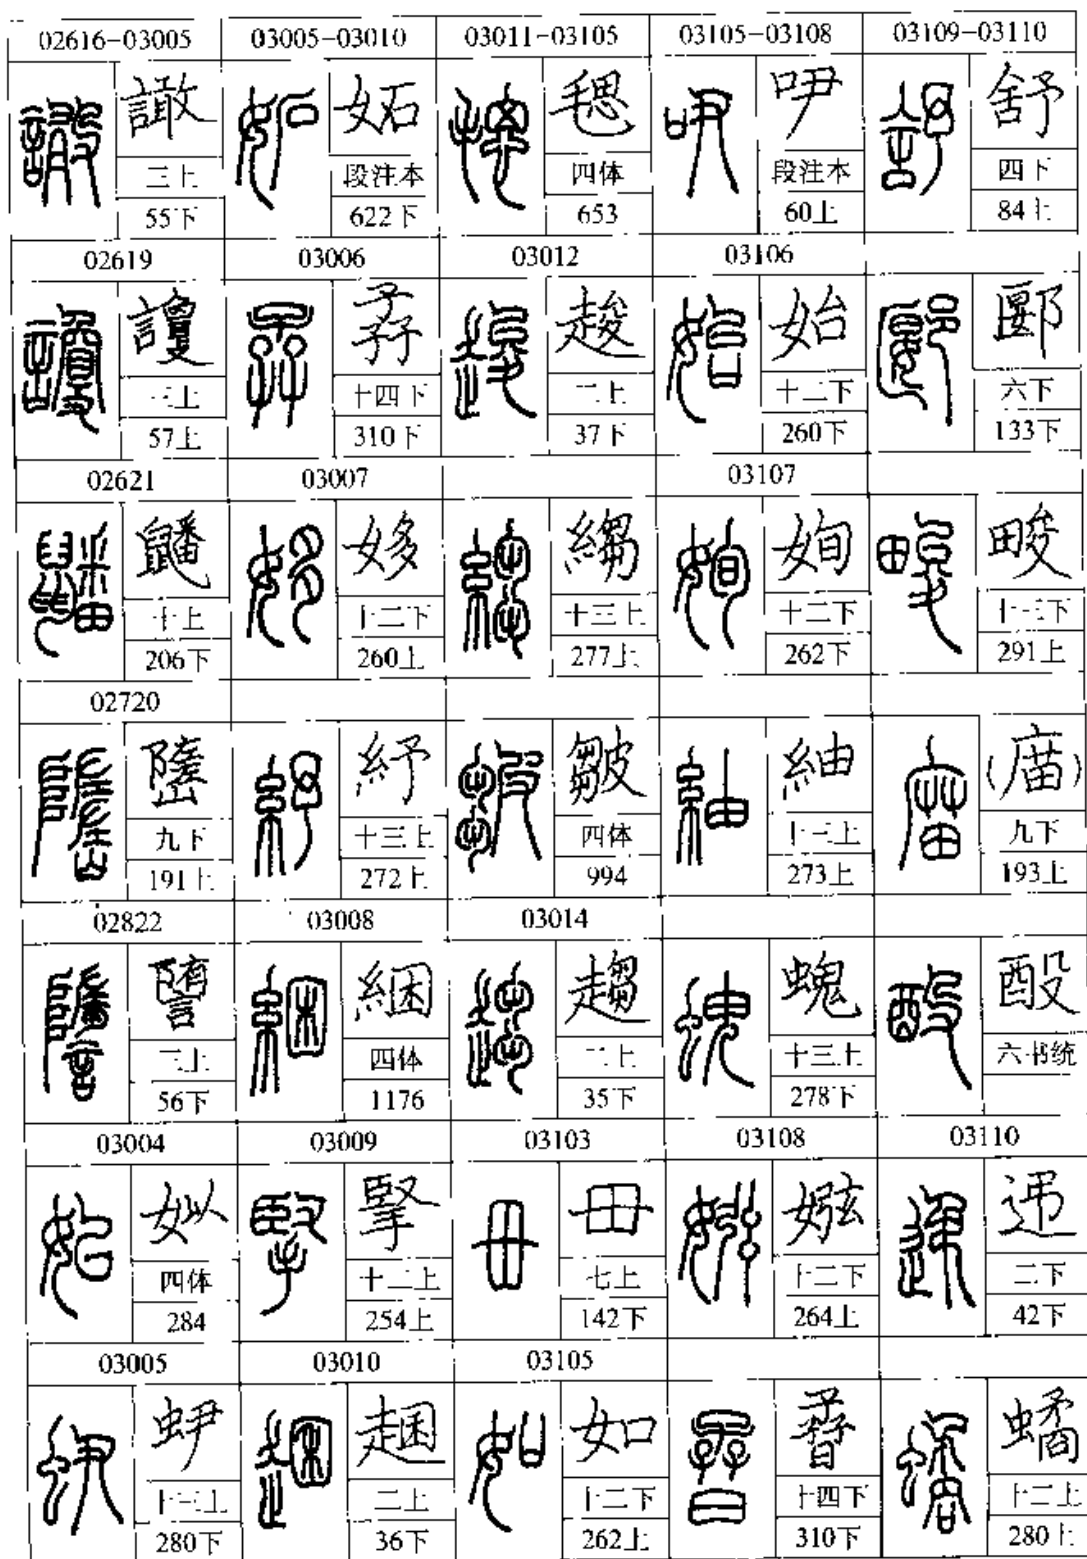 02616-03005
譀
三上
55下
02619
讂
三上
57上
02621
十上
206下
02720
嶞
九下
191上
02822
三上
56下
03004
姒
四体
284
03005
十三上
280下
03005-03010
妬
段注本
622下
03006
孨
十四下
310下
03007
姼
十二下
260上
紓
十三上
272上
03008
綑
四体
1176
03009
掔
十二上
254上
03010
二上
36下
03011-03105
毸
四体
653
03012
䞭
二上
37下
縐
十三上
277上
皺
四体
994
03014
趨
二上
35下
03103
毌
七上
142下
03105
如
十二下
262上
03105-03108
吚
段注本
60上
03106
始
十二下
260下
03107
姰
十二下
262下
紬
十三上
273上
螝
十三上
278下
03108
娹
十二下
264上
孴
十四下
310下
03109-03110
舒
四下
84上
郾
六下
133下
畯
十三下
291上
(庿)
九下
193上
酘
六书统
03110
二下
42下
280上